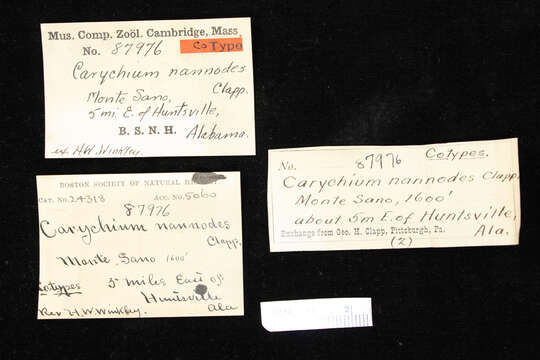 Mus. Comp. Zoöl. Cambridge, Mass.
No. 87976 CoType
Carychium nannodes
Clapp.
Monte Sano,
5 mi. E. of Huntsville,
B. S. N. H. Alabama.
ex. H.W. Winkley.
BOSTON SOCIETY OF NATURAL
CAT. NO. 24318 ACC. NO. 5060
87976
Carychium nannodes
Clapp.
Monte Sano 1600'
Cotypes 5 miles East of
Huntsville
Rev. H. W. Winkley. Ala
No. 87976 Cotypes.
Carychium nannodes Clapp.
Monte Sano, 1600'
about 5m E. of Huntsville,
Exchange from Geo. H. Clapp, Pittsburgh, Pa. Ala.
(2)